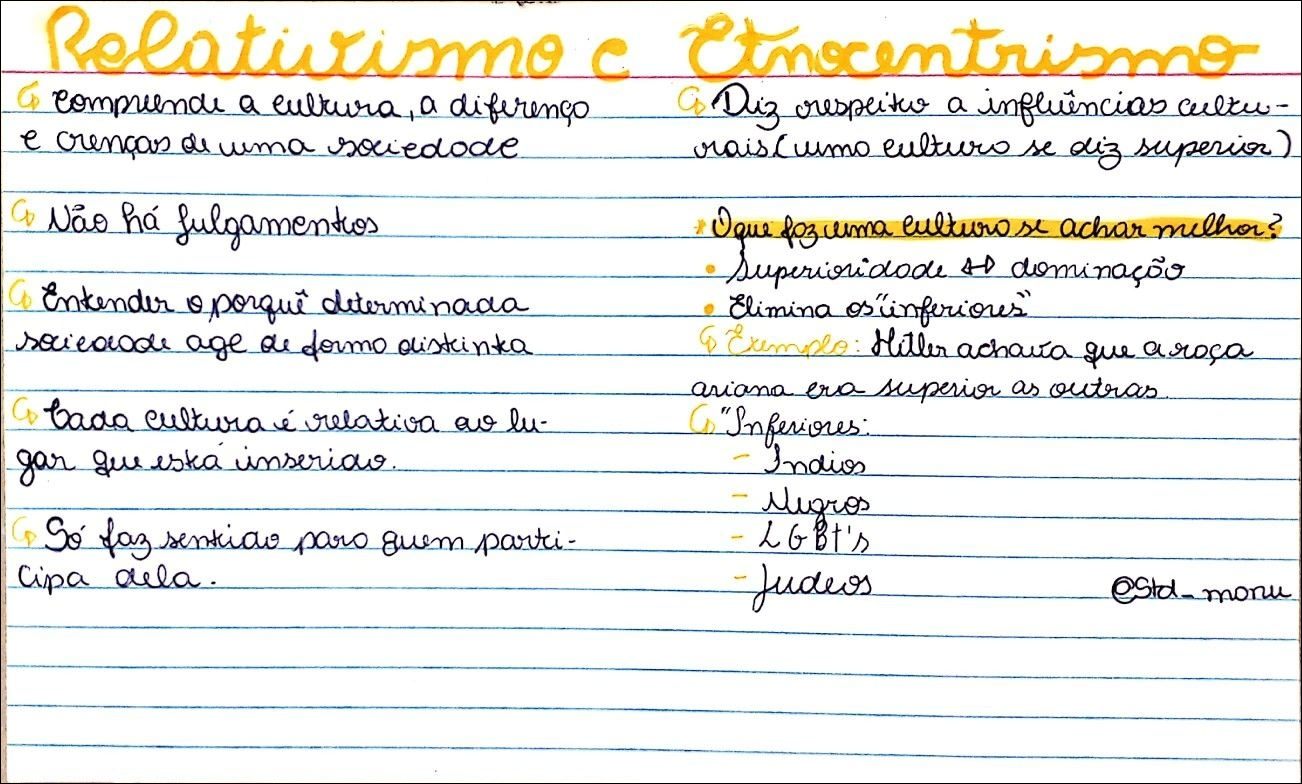 Relativismo e Etnocentrismo
Compreende a cultura, a diferença
e crenças de uma sociedade
Não há julgamentos
Entender o porquê determinada
sociedade age de forma distinta
Cada cultura é relativa ao lu-
gar que está inserido.
Só faz sentido para quem parti-
cipa dela.
Diz respeito a influências cultu-
rais (uma cultura se diz superior)
* O que faz uma cultura se achar melhor?
• Superioridade ↔ dominação
• Elimina os "inferiores"
Exemplo: Hitler achava que a raça
ariana era superior as outras.
"Inferiores:
- Índios
- Negros
- LGBT's
- Judeus
@Std_manu